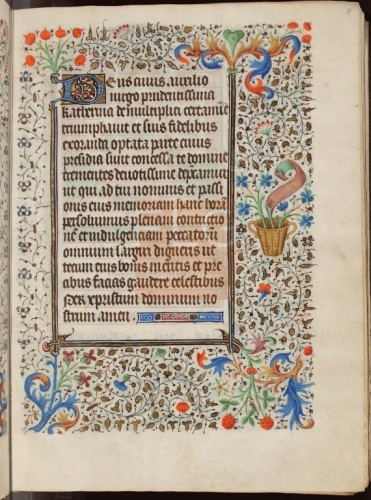 Deus cuius auxilio
uirgo prudentissima
Katherina de multiplici certamine
triumphauit et suis fidelibus
exoranda optata parte cuius
presidia sunt concessa te domine
trementes deuotissime deprecamur
ut qui ad tui nominis et passi
onis eius memoriam hanc horam
persoluimus plenam contricio
nem et indulgenciam peccatorum
omnium largiri digneris ut
tecum eius bonis meritis et pre
cibus facias gaudere celestibus
Per xpristum dominum no
strum amen.